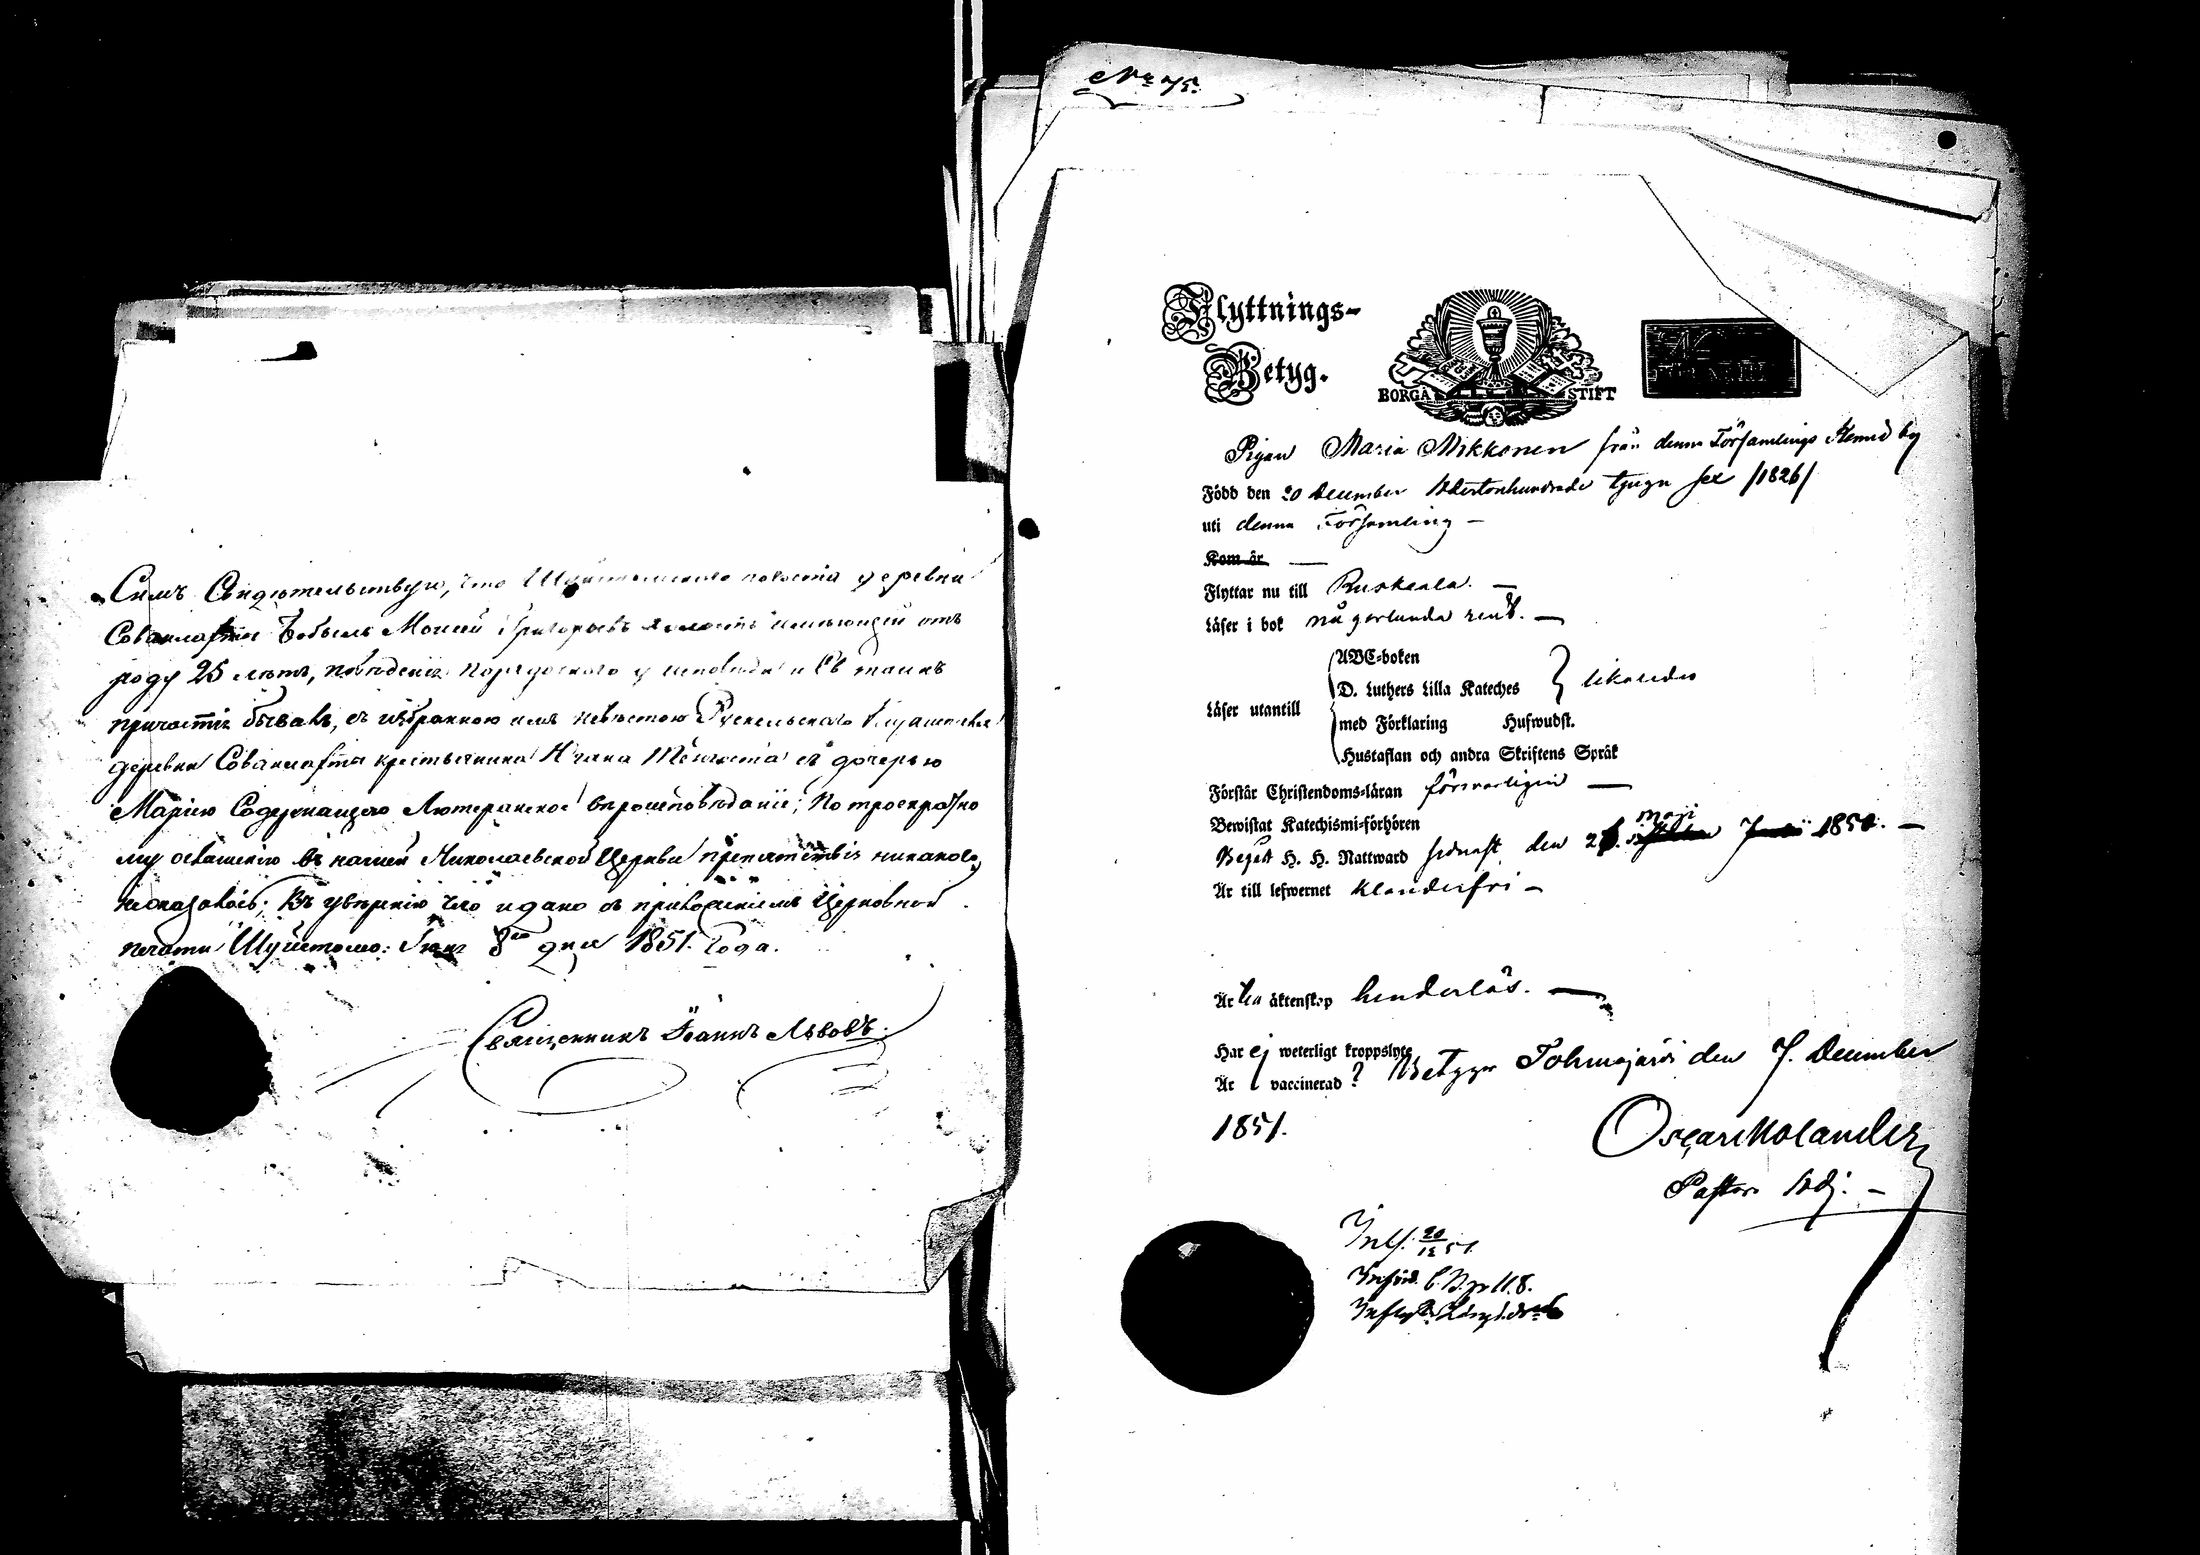 Симъ Свидѣтельствую, что погоста деревни
Бобыль Моисей Григорьевъ холостъ имѣющій отъ
роду 25 лѣтъ, поведенія порядочнаго у исповѣди и Св. таинъ
причастія бывалъ, съ избранною имъ невѣстою Рускельскаго
деревни крестьянина съ дочерью
Маріею Содержащею Лютеранское вѣроисповѣданіе; по троекратно
му оглашенію въ нашей Николаевской Церкви препятствія никакого
неоказалось; Въ увѣреніе чего и дано съ приложеніемъ Церковной
печати 8го дня 1851. Года.
Священникъ Іоаннъ Львовъ.
No 75.
Flyttnings-
Betyg.
BORGÅ STIFT
Pigan Maria Mikkonen från denna Församlings Kemie by
Född den 20 December Adertonhundrade tjugu sex /1826/
uti denna Församling –
Kom år —
Flyttar nu till Ruskeala. –
Läser i bok någorlunda rent. –
Läser utantill
ABC-boken
D. Luthers Lilla Kateches } likaledes
med Förklaring Hufwudst.
Hustaflan och andra Skriftens Språk
Förstår Christendoms-läran försvarligen —
Bewistat Katechismi-förhören
Begått H. H. Nattward sednast den Maji 1851. –
Är till lefwernet klanderfri –
Är till äktenskap hinderlös. —
Har ej weterligt kroppslyte
Är vaccinerad? Betygar Tohmajärvi den 7. December
1851.
Oscar Molander
Pastors Adj. –
Inl. 20/12 51.